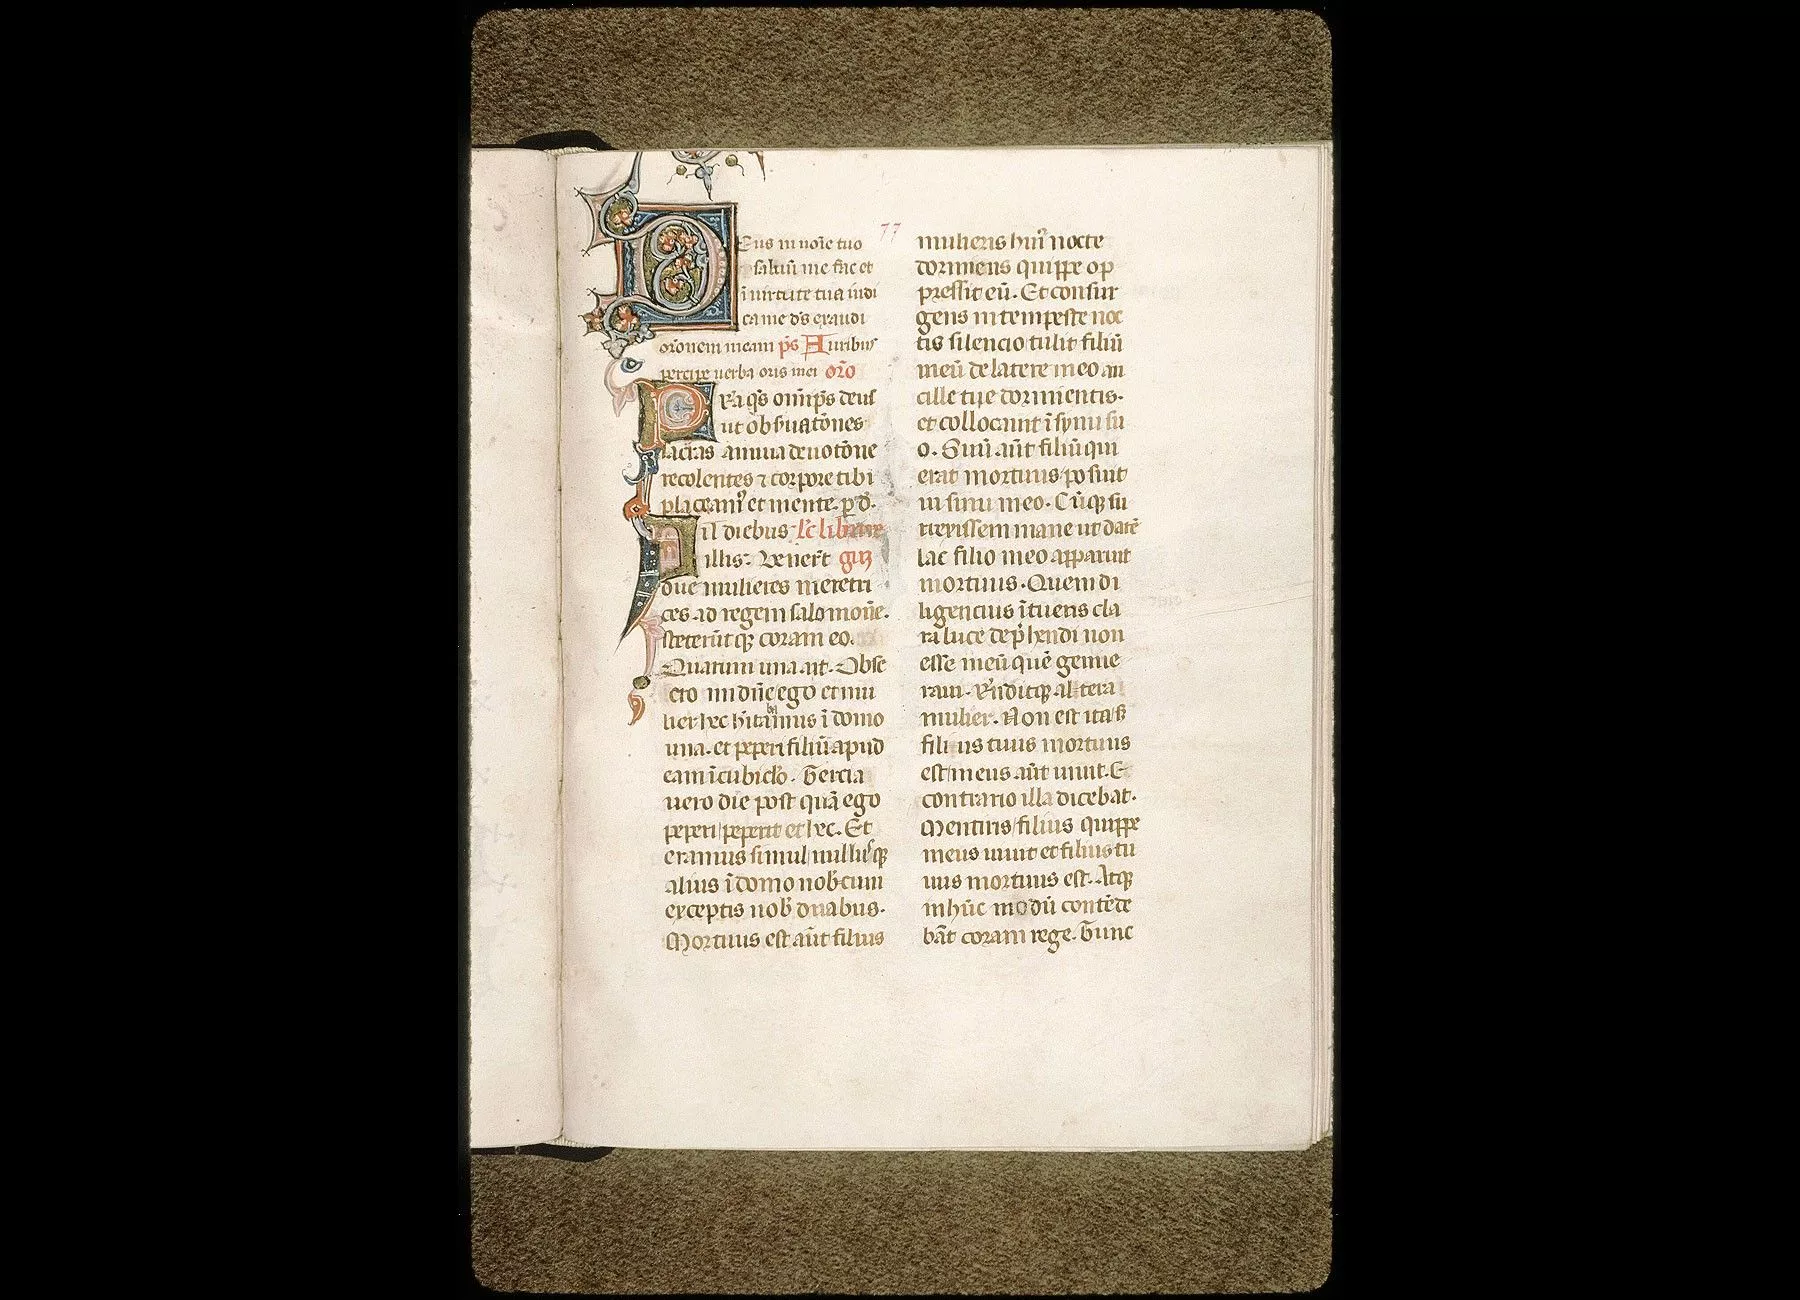 77
Deus in noīe tuo
saluū me fac et
ī uirtute tua iudi
ca me ds̄ exaudi
orōnem meam p̄s Auribus
percipe uerba oris mei orō
Pra qs̄ omīps deus
ut obseruatōnes
sacras annua deuotōne
recolentes ⁊ corpore tibi
placeamꝰ et mente. p d̄.
In diebus Lc̄ libri
illis. Venert̄
due mulieres meretri
ces ad regem salomonē.
steterūtqꝫ coram eo.
Quarum una ait. Obse
cro mi dn̄e ego et mu
lier hec hītabamus ī domo
una. et peperi filiū apud
eam ī cubiclo. Tercia
uero die post quā ego
peperi peperit et hec. Et
eramus simul nullusqꝫ
alius ī domo nobcum
exceptis nob duabus.
Mortuus est aūt filius
mulieris huiꝰ nocte
dormiens quippe op
pressit eū. Et consur
gens intempeste noc
tis silencio tulit filiū
meū de latere meo an
cille tue dormientis.
et collocauit ī synu su
o. Suū aūt filiū qui
erat mortuus posuit
in sinu meo. Cūqꝫ su
rrexissem mane ut darē
lac filio meo apparuit
mortuus. Quem di
ligencius ītuens cla
ra luce dep̄hendi non
esse meū quē genue
ram. Rn̄ditqꝫ altera
mulier. Non est ita sꝫ
filius tuus mortuus
est meus aūt uiuit. E
contrario illa dicebat.
Mentiris filius quippe
meus uiuit et filius tu
uus mortuus est. Atqꝫ
in hūc modū contēde
bāt coram rege. Tunc